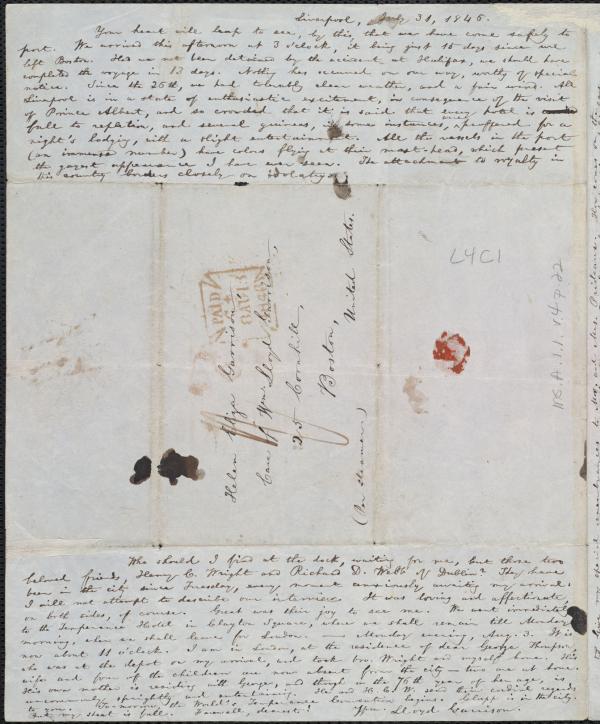 Liverpool, July 31, 1846.
Your heart will leap to see, by this, that we have come safely to
port. We arrived this afternoon at 3 o'clock, it being just 15 days since we
left Boston. Had we not been detained by the accident at Halifax, we should have
completed the voyage in 13 days. Nothing has occurred on our way, worthy of special
notice. Since the 25th, we had tolerably clear weather, and a fair wind. All
Liverpool is in a state of enthusiastic excitement, in consequence of the visit
of Prince Albert, and so crowded that it is said that every hotel is
full to repletion, and several guineas, in some instances, are offered for a
night's lodging, with a slight entertainment. All the vessels in the port
(an immense number) have colors flying at their mast-head, which present
the gayest appearance I have ever seen. The attachment to royalty in
this country borders closely on idolatry.
PAID
Helen Eliza Garrison,
Care of Wm. Lloyd Garrison,
25 Cornhill,
Boston,
United States.
(Per steamer.)
L4C1
Ms.A.1.1 v4 p22
Who should I find at the dock, waiting for me, but those two
beloved friends, Henry C. Wright and Richard D. Webb of Dublin? They have
been in the city since Tuesday, every moment anxiously awaiting my arrival.
I will not attempt to describe our interview. It was loving and affectionate,
on both sides, of course. Great was their joy to see me. We went immediately
to the Temperance Hotel in Clayton Square, where we shall remain till Monday
morning, when we shall leave for London. Monday evening, Aug. 3. It is
now about 11 o'clock. I am in London, at the residence of dear George Thompson,
who was at the depot on my arrival, and took bro. Wright and myself home. His
wife and four of the children are now absent from the city — two are at home.
His own mother is residing with George, and though in the 76th year of her age, is
uncommonly sprightly and entertaining. He and H. C. W. send their cordial regards
to you. To-morrow, the World's Temperance Convention begins its sessions in the city.
But my sheet is full. Farewell, dearest! Wm. Lloyd Garrison.